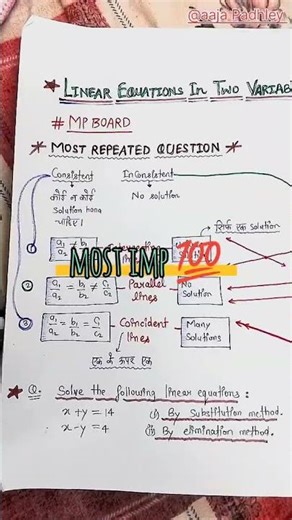 @aaja Padhley
* LINEAR EQUATIONS IN TWO VARIABL
# MP BOARD
* MOST REPEATED QUESTION *
Consistent InConsistent
कोई न कोई No solution
Solution hona
चाहिए।
सिर्फ एक Solution
① a₁/a₂ ≠ b₁/b₂
MOST IMP 100
② a₁/a₂ = b₁/b₂ ≠ C₁/C₂ Parallel lines No Solution
③ a₁/a₂ = b₁/b₂ = C₁/C₂ Coincident lines Many Solutions
एक के ऊपर एक
* Q. Solve the following linear equations :
x + y = 14 (i) By Substitution method.
x - y = 4 (ii) By elimination method.